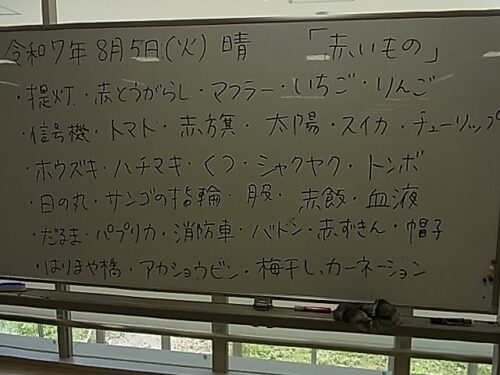 令和7年 8月5日(火) 晴 「赤いもの」
・提灯・赤とうがらし・マフラー・いちご・りんご
・信号機・トマト・赤方旗・太陽・スイカ・チューリップ
・ホウズキ・ハチマキ・くつ・シャクヤク・トンボ
・日の丸・サンゴの指輪・服・赤飯・血液
・だるま・パプリカ・消防車・バトン・赤ずきん・帽子
・はりまや橋・アカショウビン・梅干し、カーネーション